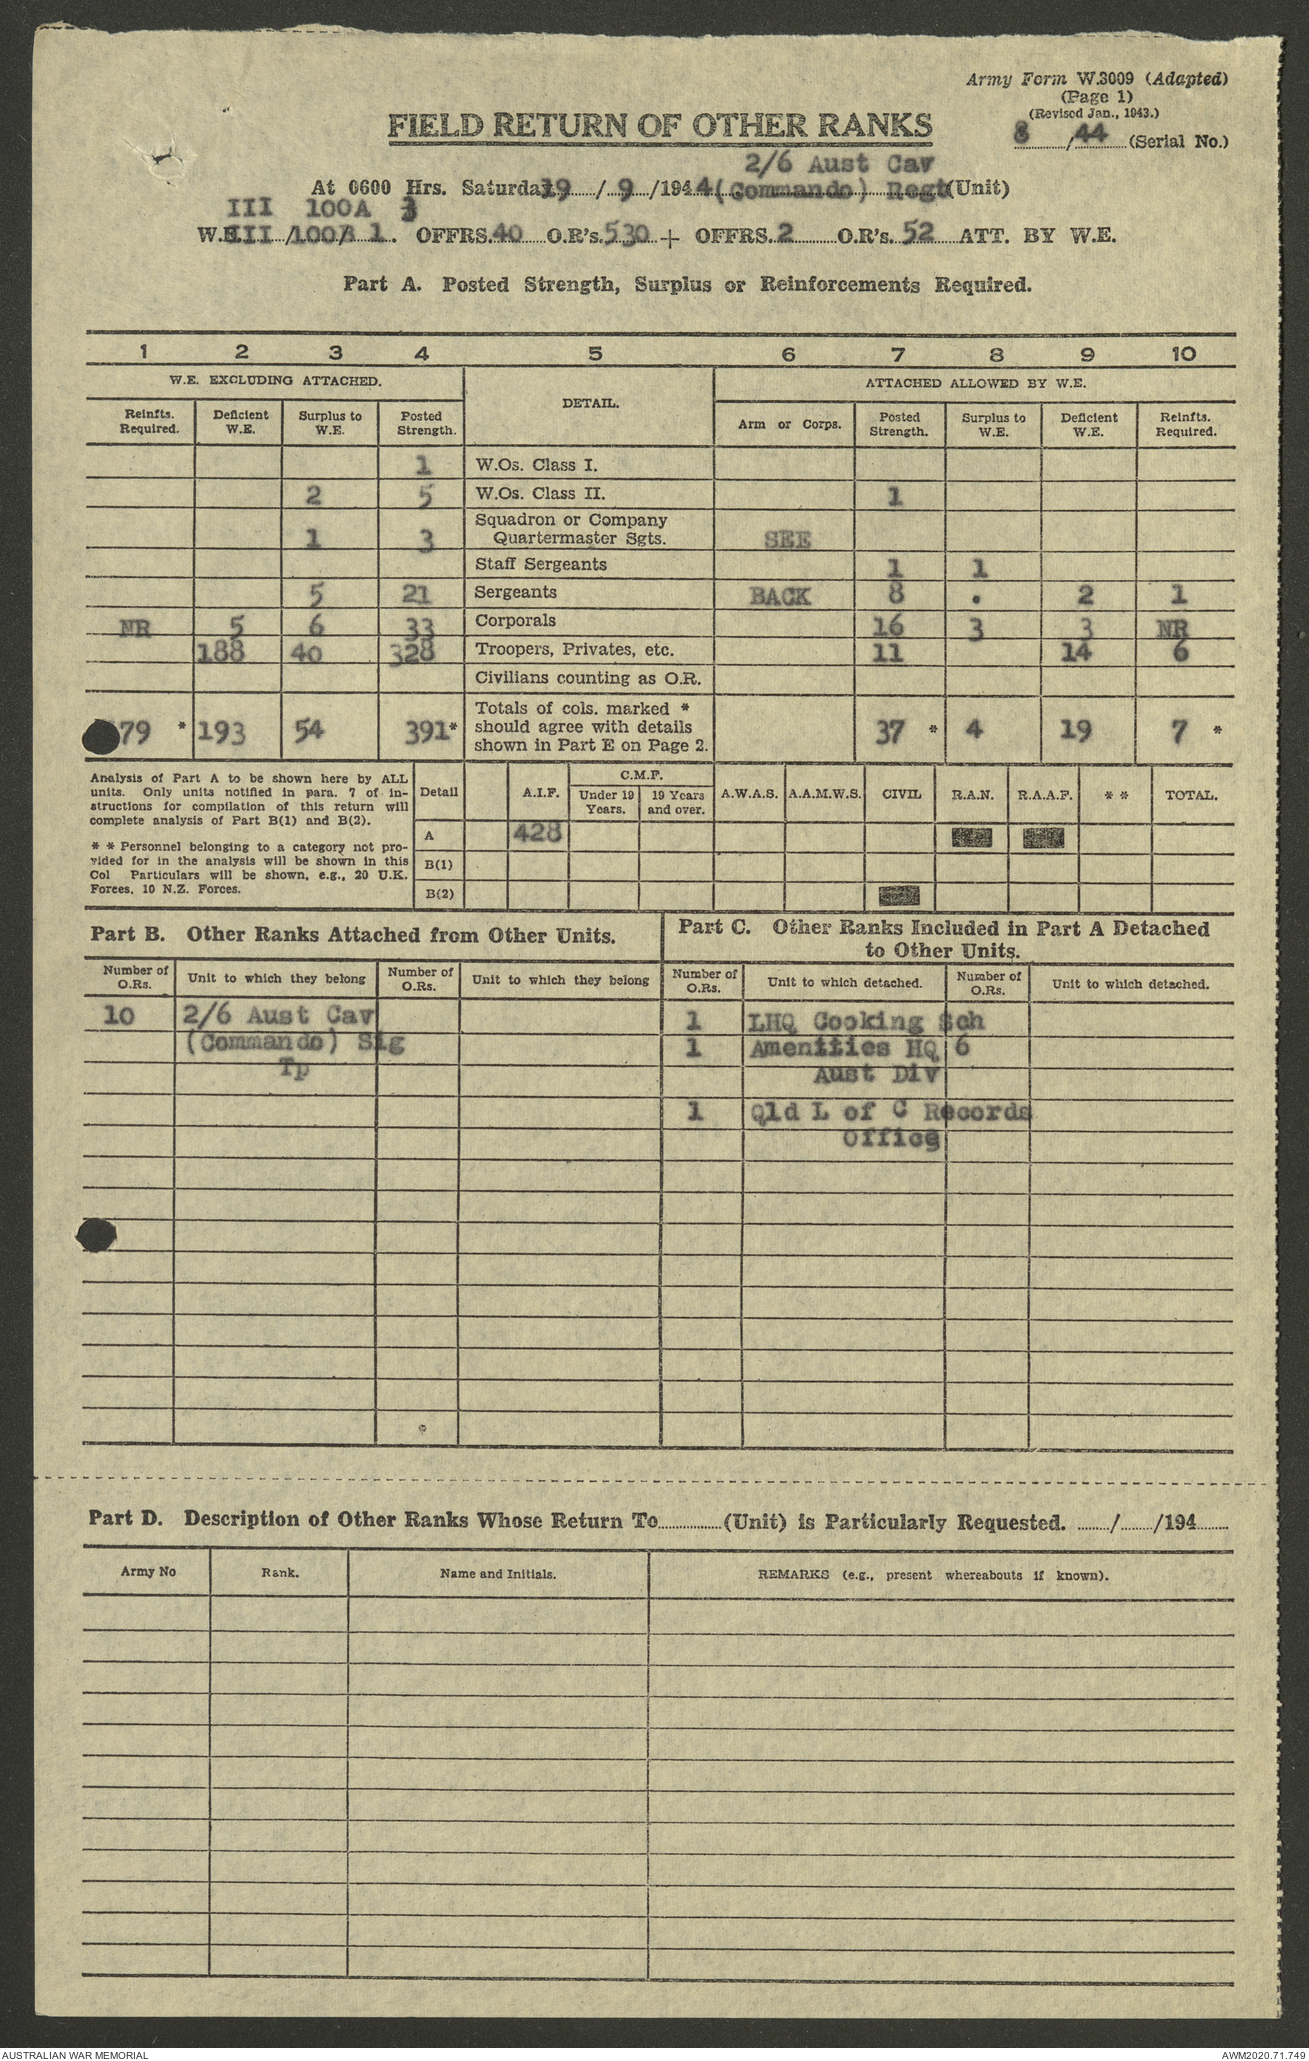 Army Form W.3009 (Adapted)
(Page 1)
(Revised Jan., 1943.)
8/44 (Serial No.)
FIELD RETURN OF OTHER RANKS
2/6 Aust Cav
At 0600 Hrs. Saturday 19/9/1944 (Commando) Regt (Unit)
III 100A 3
W.E. III/100/3 1. OFFRS. 40 O.R's. 530 + OFFRS. 2 O.R's. 52 ATT. BY W.E.
Part A. Posted Strength, Surplus or Reinforcements Required.
1 2 3 4 5 6 7 8 9 10
W.E. EXCLUDING ATTACHED. DETAIL. ATTACHED ALLOWED BY W.E.
Reinfts. Required. Deficient W.E. Surplus to W.E. Posted Strength. Arm or Corps. Posted Strength. Surplus to W.E. Deficient W.E. Reinfts. Required.
1 W.Os. Class I.
2 5 W.Os. Class II. 1
Squadron or Company
1 3 Quartermaster Sgts. SEE
Staff Sergeants 1 1
5 21 Sergeants BACK 8 . 2 1
NR 5 6 33 Corporals 16 3 3 NR
188 40 328 Troopers, Privates, etc. 11 14 6
Civilians counting as O.R.
Totals of cols. marked *
79 * 193 54 391* should agree with details 37 * 4 19 7 *
shown in Part E on Page 2.
Analysis of Part A to be shown here by ALL
units. Only units notified in para. 7 of in-
structions for compilation of this return will
complete analysis of Part B(1) and B(2).
* * Personnel belonging to a category not pro-
vided for in the analysis will be shown in this
Col Particulars will be shown, e.g., 20 U.K.
Forces, 10 N.Z. Forces.
Detail A.I.F. C.M.F. Under 19 Years. 19 Years and over. A.W.A.S. A.A.M.W.S. CIVIL R.A.N. R.A.A.F. * * TOTAL.
A 428
B(1)
B(2)
Part B. Other Ranks Attached from Other Units.
Number of O.Rs. Unit to which they belong Number of O.Rs. Unit to which they belong
10 2/6 Aust Cav
(Commando) Sig
Tp
Part C. Other Ranks Included in Part A Detached
to Other Units.
Number of O.Rs. Unit to which detached. Number of O.Rs. Unit to which detached.
1 LHQ Cooking Sch
1 Amenities HQ 6
Aust Div
1 Qld L of C Records
Office
Part D. Description of Other Ranks Whose Return To............(Unit) is Particularly Requested. ......../......../194........
Army No Rank. Name and Initials. REMARKS (e.g., present whereabouts if known).
AUSTRALIAN WAR MEMORIAL AWM2020.71.749